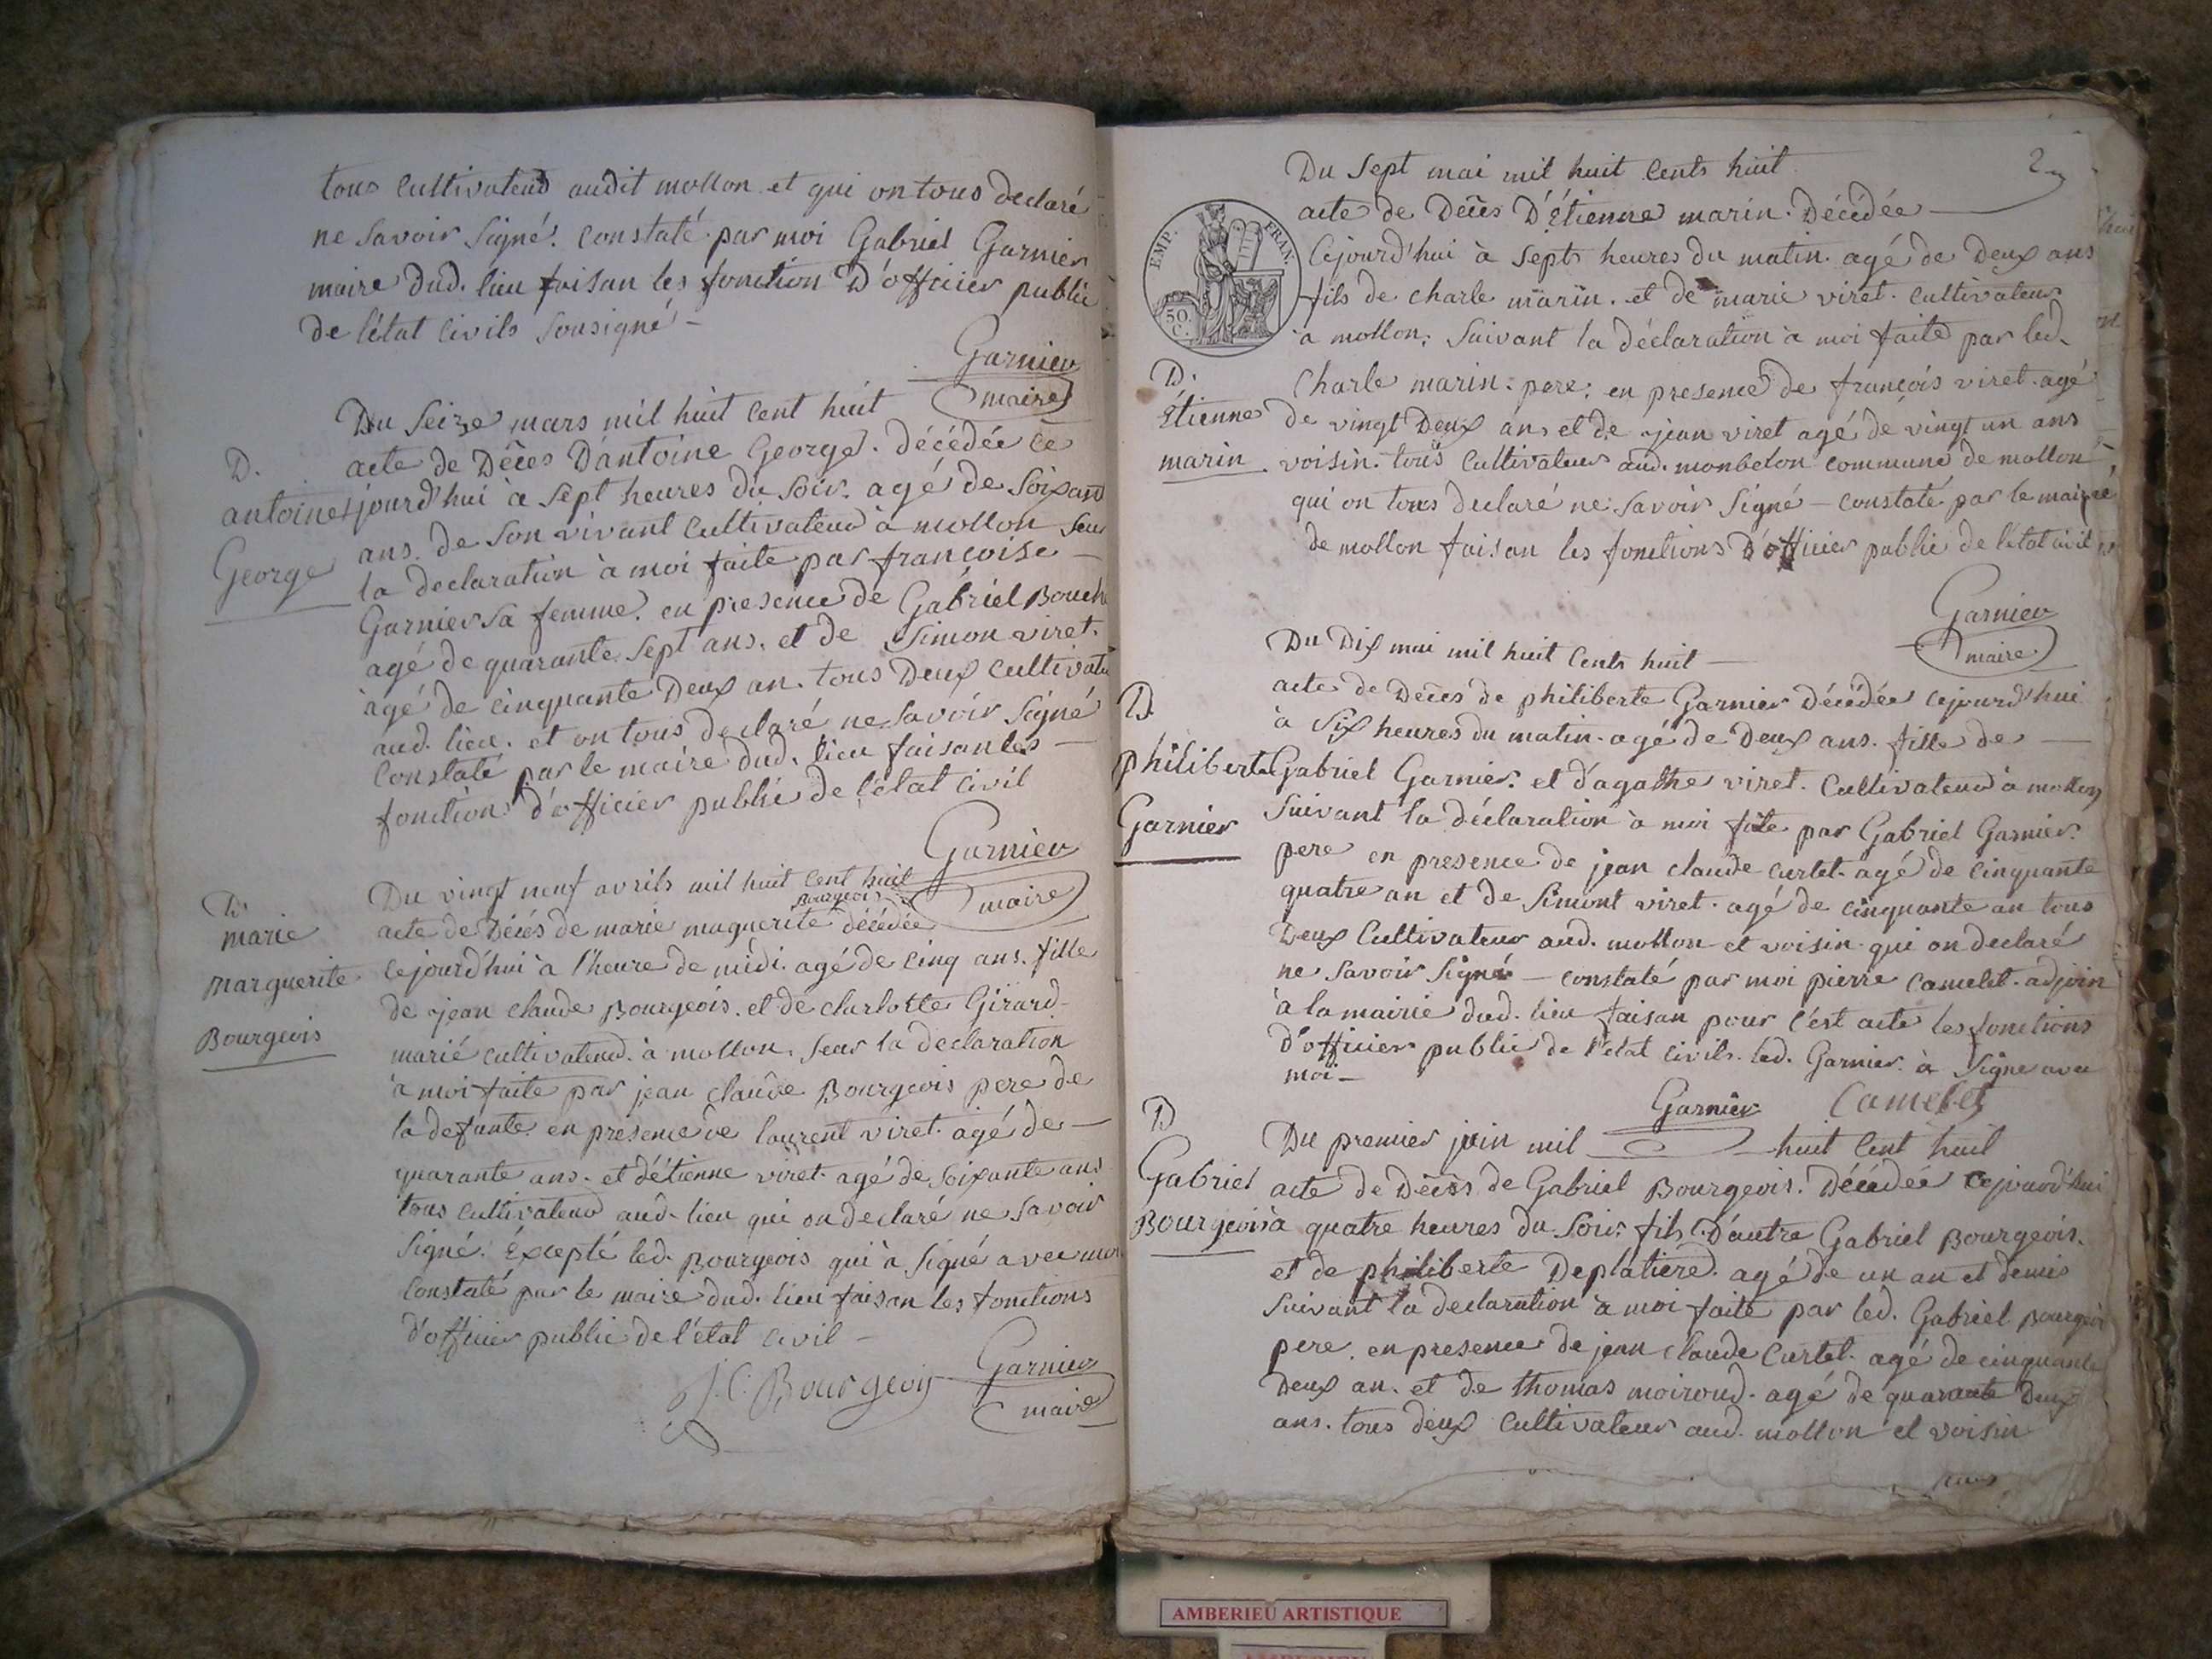 tous Cultivateurs audit mollon et qui on tous declaré
ne Savoir Signé. Constaté par moi Gabriel Garnier
maire dud. lieu faisan les fonction D'officier public
de l'état Civils Sousigné –
Garnier
maire
Du Seize mars mil huit Cent huit
D.
antoine
George
acte de Décès D'antoine George. décédée Ce
jourd'hui à Sept heures du Soir. agé de Soixant
ans. de Son vivant Cultivateur à mollon
la declaration à moi faite par françoise –
Garnier Sa femme. en presence de Gabriel Bouch
agé de quarante Sept ans. et de Simon viret.
àgé de Cinquante Deux an. tous Deux Cultivate
aud. lieu. et on tous declaré ne Savoir Signé
Constaté par le maire dud. lieu faisan les –
fonction d'officier public de l'état Civil
Garnier
maire
Du vingt neuf avrils mil huit Cent huit
D.
marie
marguerite
Bourgeois
Bourgeois
acte de Décés de marie maguerite décédée
Cejourd'hui à l'heure de midi. agé de Cinq ans. fille
de jean Claude Bourgeois. et de Charlotte Girard –
marié Cultivateur. à mollon. la declaration
à moi faite par jean Claude Bourgeois pere de
la defunte. en presence de laurent viret. agé de –
quarante ans. et d'étienne viret. agé de Soixante ans
tous Cultivateur aud. lieu qui on declaré ne Savoir
Signé. Éxcepté led. Bourgeois qui à Signé avec moi
Constaté par le maire dud. lieu faisan les fonctions
d'officier public de l'état Civil –
J. C. Bourgeois
Garnier
maire
2
Du Sept mai mil huit Cents huit
EMP. FRAN.
50 C.
acte de Décès D'Étienne marin. Décédée –
Cejourd'hui à Sept heures du matin. agé de Deux ans
fils de Charle marin. et de marie viret. Cultivateur
à mollon. Suivant la déclaration à moi faite par led.
D.
Étienne
marin
Charle marin. pere. en presence de françois viret. agé
de vingt Deux ans et de jean viret agé de vingt un ans
voisin. tous Cultivateur aud. monbelon Commune de mollon
qui on tous declaré ne Savoir Signé – Constaté par le maire
de mollon faisan les fonctions D'officier public de l'état civil
Garnier
maire
Du Dix mai mil huit Cents huit –
D.
philiberte
Garnier
acte de Décès de philiberte Garnier Décédée Cejourd'hui
à Six heures du matin. agé de Deux ans. fille de –
Gabriel Garnier. et d'agathe viret. Cultivateur à mollon
Suivant la déclaration à moi faite par Gabriel Garnier.
pere en presence de jean claude Curtet. agé de Cinquante
quatre an et de Simont viret. agé de Cinquante an tous
Deux Cultivateur aud. mollon et voisin. qui on declaré
ne Savoir Signé – Constaté par moi pierre Camelet. adjoin
à la mairie dud. lieu faisan pour C'est acte les fonctions
d'officier public de l'état Civils. led. Garnier. à Signe avec
moi –
Garnier Camelet
D
Gabriel
Bourgeois
Du premier juin mil huit Cent huit
acte de Décès de Gabriel Bourgeois. Décédée Cejourd'hui
à quatre heures du Soir. fils D'autre Gabriel Bourgeois.
et de philiberte Deplatiere. agé de un an et demis
Suivant la declaration à moi faite par led. Gabriel Bourgeoi
pere. en presence de jean Claude Curtet. agé de cinquante
Deux an. et de thomas moiroud. agé de quarante Deux
ans. tous deux Cultivateur aud. mollon et voisin
AMBERIEU ARTISTIQUE
AMBERIEU